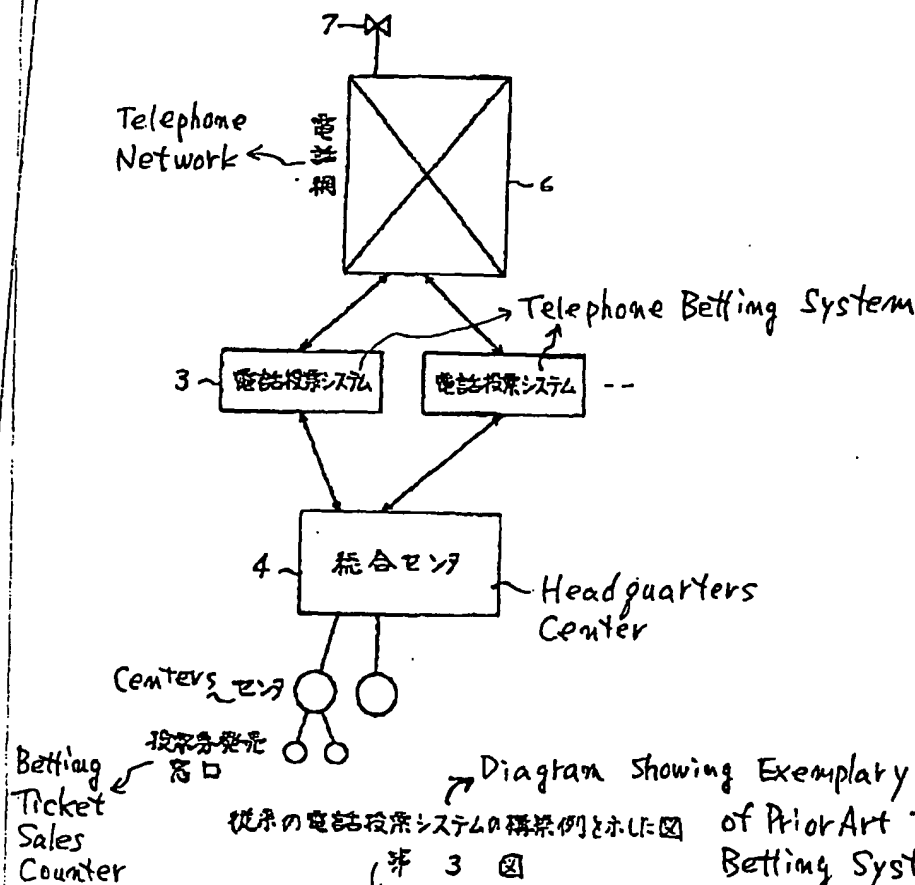 7
Telephone
Network
電話網
6
Telephone Betting System
3
電話投票システム
電話投票システム
--
4
総合センタ
Headquarters
Center
Centers
センタ
投票券発売
窓口
Betting
Ticket
Sales
Counter
Diagram Showing Exemplary
of Prior Art
Betting Syst
従来の電話投票システムの構築例を示した図
第 3 図